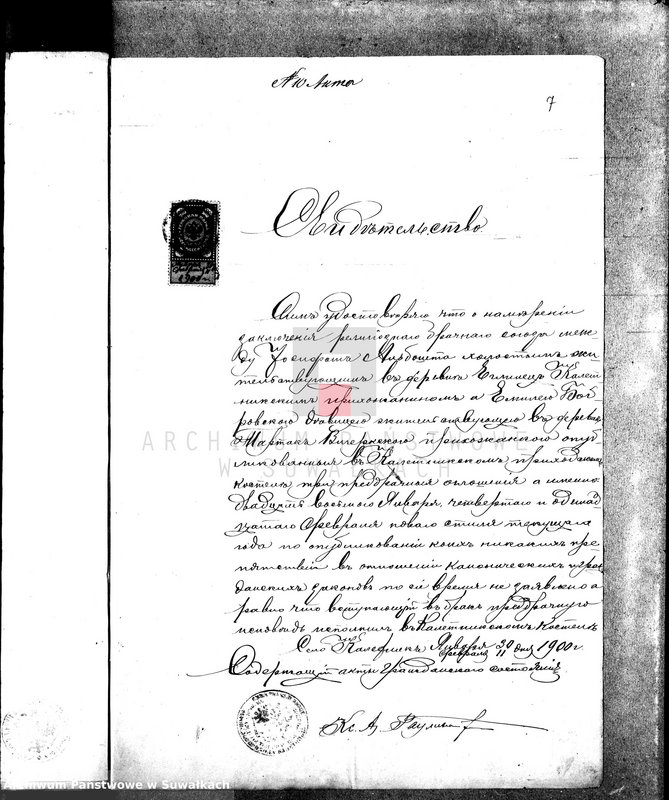 7
Свидѣтельство
Симъ удостовѣряю что о намѣреніи
заключенія религіознаго брачнаго союза меж-
ду Іосифомъ холостымъ жи-
тельствующимъ въ деревнѣ Калет-
никскимъ прихожаниномъ а Емиліей
дѣвицею жительствующею въ деревнѣ
прихожанкою опуб-
ликованныя въ Калетникскомъ приходскомъ
костелѣ три предбрачныя оглашенія а именно
двадцать восьмого Января, четвертаго и одинад-
цатаго Февраля новаго стиля текущаго
года по опубликованіи коихъ никакихъ пре-
пятствій въ отношеніи каноническихъ и граж-
данскихъ законовъ по сіе время не заявлено а
равно что вступающій въ бракъ предбрачную
исповѣдь исполнилъ въ Калетникскомъ костелѣ
Село Калетникъ Января 30 / Февраля 11 дня 1900 г
Содержащій акты гражданскаго состоянія
Кс. А.
ARCHIWUM PAŃSTWOWE
W SUWAŁKACH
Archiwum Państwowe w Suwałkach